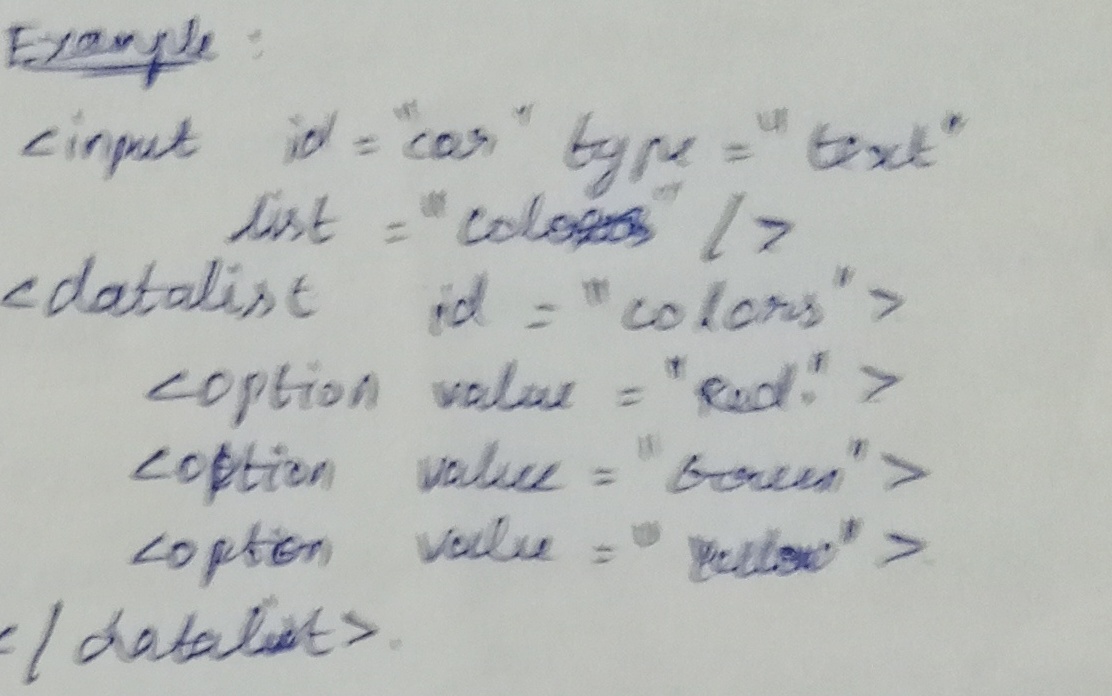 Example :
<input id = "car" type = "text"
list = "colors" />
<datalist id = "colors">
<option value = "Red." >
<option value = "Green">
<option value = "Yellow" >
</datalist>.